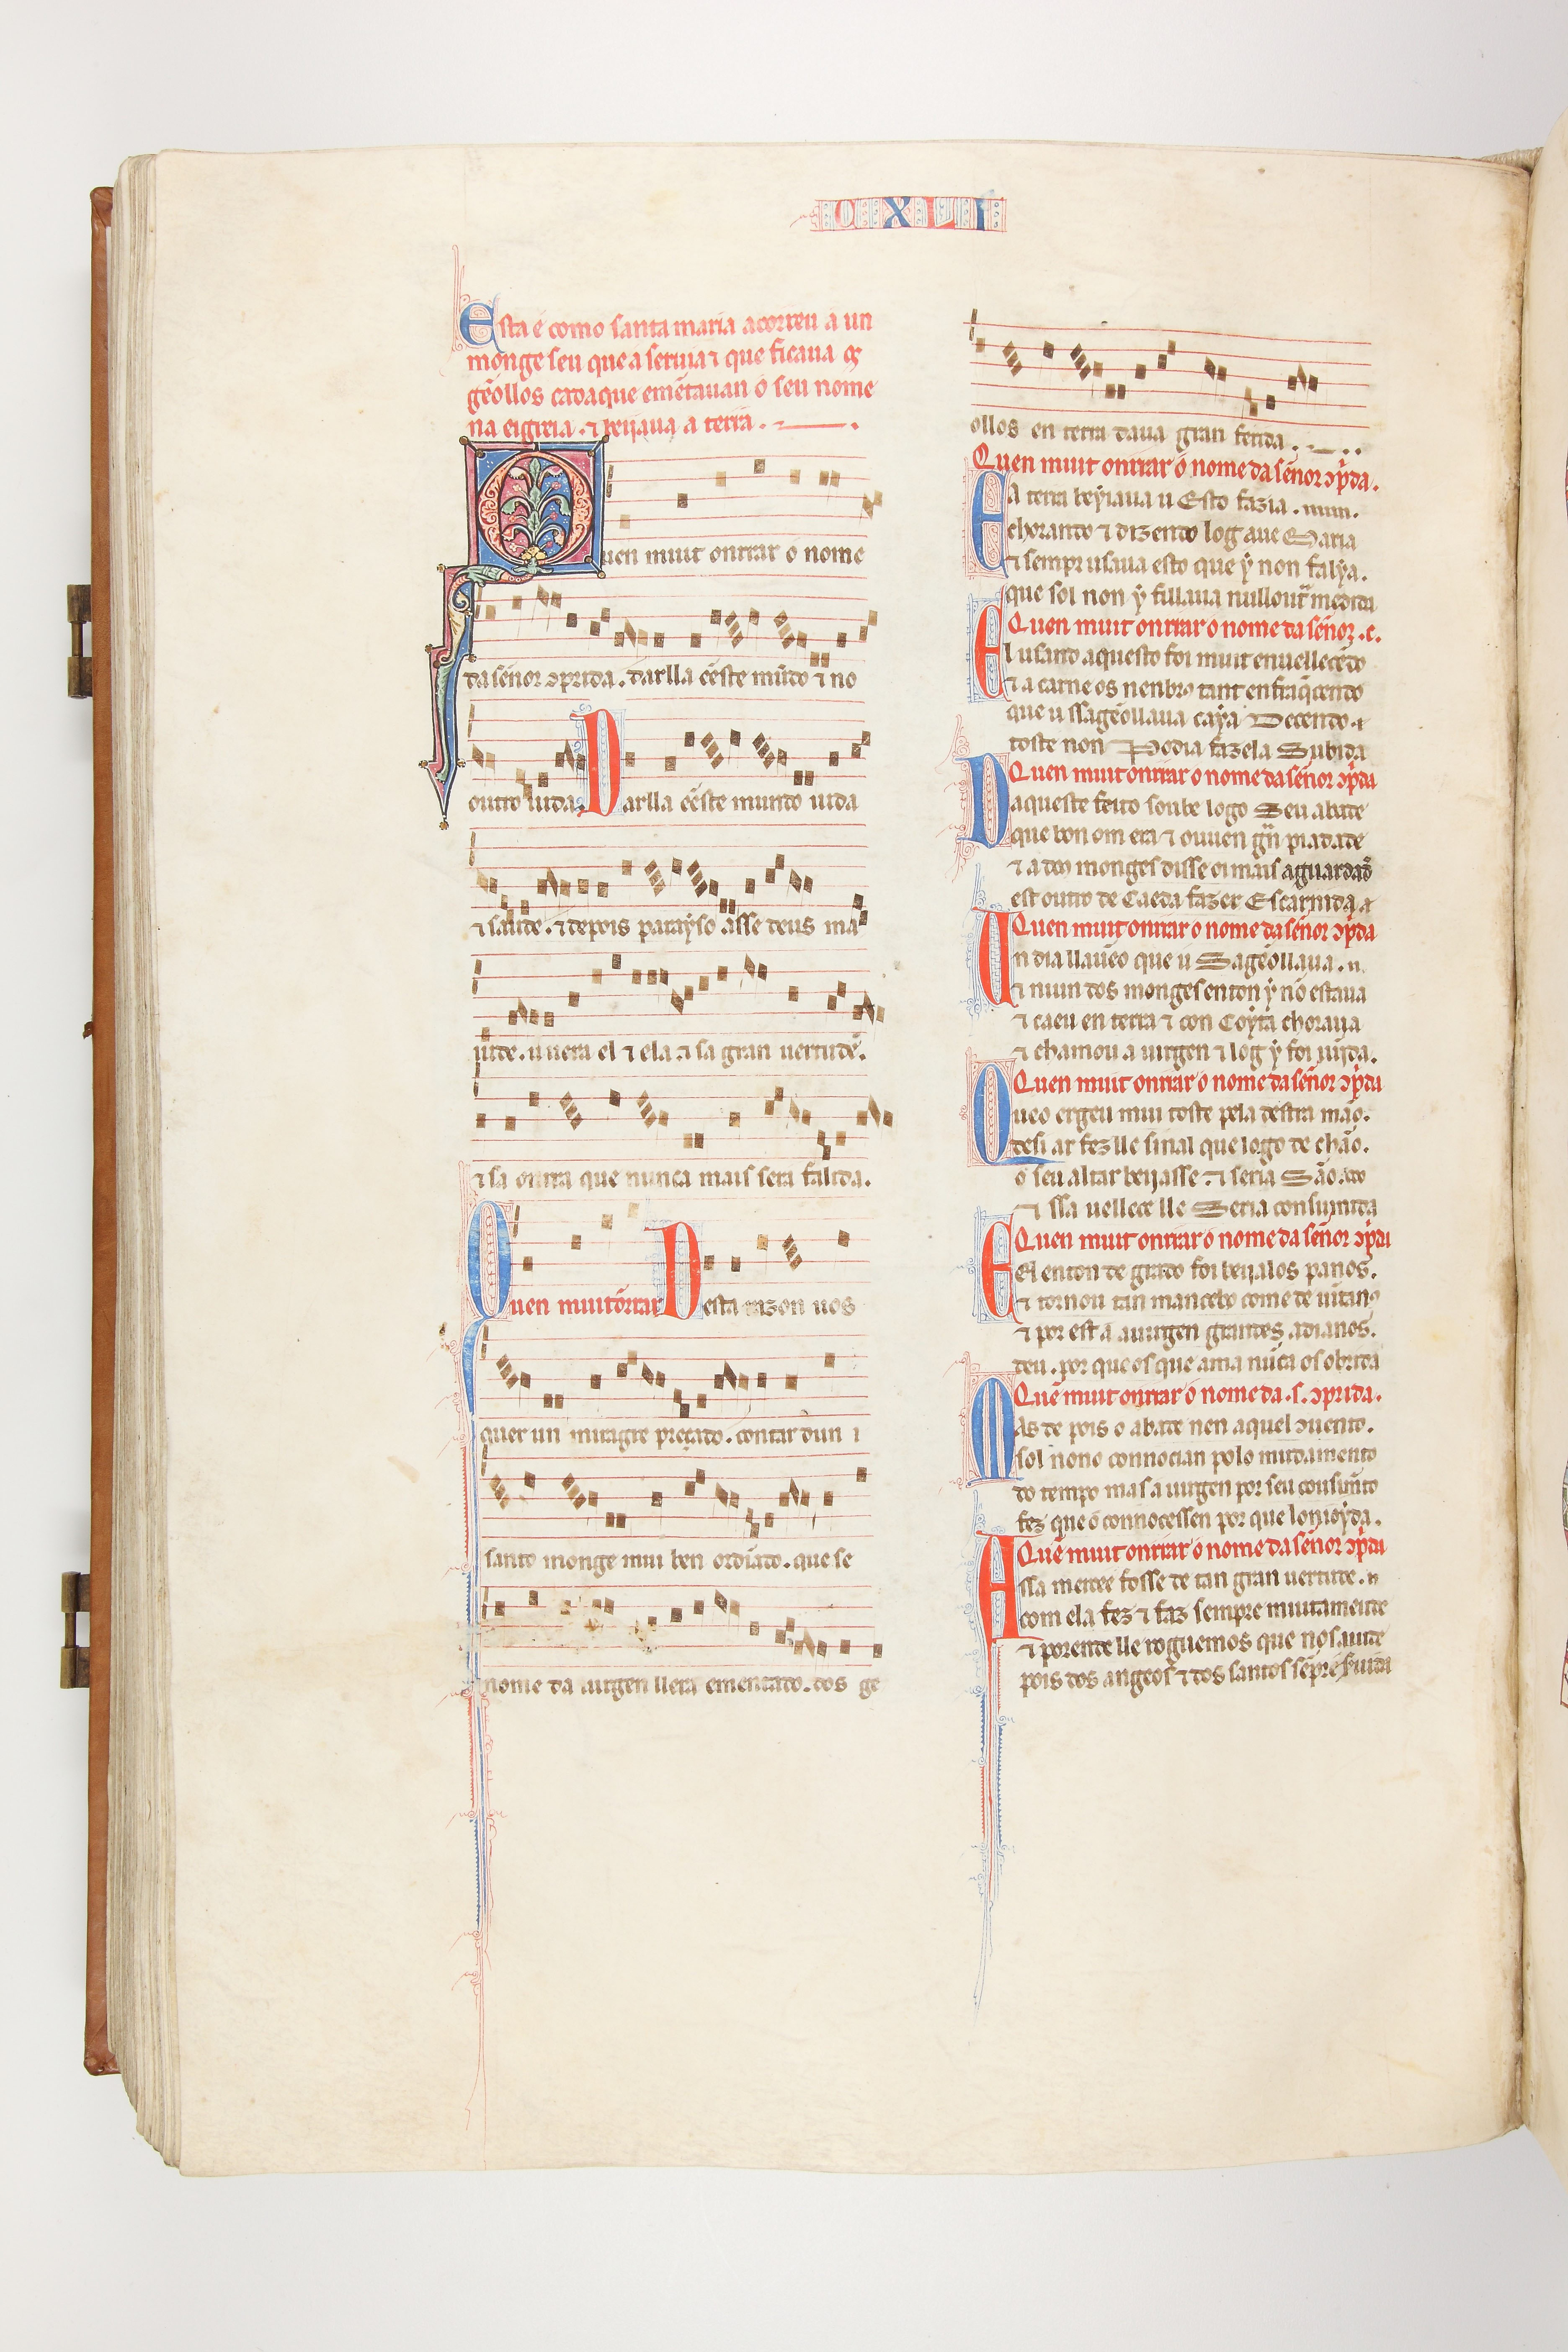 CXLI
Esta é como santa maria acorreu a un
monge seu que a seruia ⁊ que ficaua os
gẽollos cada que emẽtauan o seu nome
na eigreia. ⁊ beijaua a terra.
Quen muit onrrar o nome
da sẽnor ↄprida. darlla ẽeste mũdo ⁊ no
outro uida. Darlla ẽeste mundo uida
⁊ saude. ⁊ depois parayso asse deus ma
iude. u uera el ⁊ ela ⁊ sa gran uertude.
⁊ sa onrra que nunca mais sera falida.
Quen muit õrrar Desta razon uos
quer un miragre preçado. contar dun
santo monge mui ben ordĩado. que se
nome da uirgen llera ementado. dos ge
ollos en terra daua gran ferida.
Quen muit onrrar o nome da sẽnor ↄp̃da.
E a terra beyiaua u Esto fazia.
chorando ⁊ dizendo log aue Maria
⁊ sempr usaua esto que y non falya.
que sol non y fillaua null outr̃ medida
Quen muit onrrar o nome da sẽnor. c.
El usando aquesto foi muit enuellecẽdo
⁊ a carne os nenbros tant enfraq̃cendo
que u ssagẽollaua caya Decendo. ⁊
toste non Podia fazela Subida
Quen muit onrrar o nome da sẽnor ↄp̃da
Daqueste feito soube logo Seu abade
que bon om era ⁊ ouuen gr̃n piadade
⁊ a dous monges disse oi mais aguardad̃
est outro de Caeda fazer Escarnida. ⁊
Quen muit onrrar o nome da sẽnor ↄp̃da
Un dia llauẽo que u Sagẽollaua.
⁊ niun dos monges enton y nõ estaua
⁊ caeu en terra ⁊ con Coyta choraua
⁊ chamou a uirgen ⁊ log y foi uĩjda.
Quen muit onrrar o nome da sẽnor ↄp̃da
Queo ergeu mui toste pela destra mão.
desi ar fez lle sinal que logo de chão.
o seu altar beijasse. ⁊ seria São. do
⁊ ssa uellece lle Seria consumida
Quen muit onrrar o nome da sẽnor ↄp̃da
El enton de grado foi beijalos panos.
⁊ tornou tan mancebo come de uĩtanos
⁊ por est a a uirgen grandes adianos.
deu. por que os que ama nũca os obrida
Quẽ muit onrrar o nome da. s. ↄprida.
Mas de pois o abade nen aquel ↄuento.
sol nono connocian polo mudamento
do tempo mas a uirgen por seu cousim̃to
fez que o connocessen por que lonioyda.
Quẽ muit onrrar o nome da sẽnor ↄp̃da
Assa mercee fosse de tan gran uertude.
com ela fez ⁊ faz sempre muitamente
⁊ porende lle roguemos que nosaiude
pois dos angeos ⁊ dos santos sẽpre ẽ suida